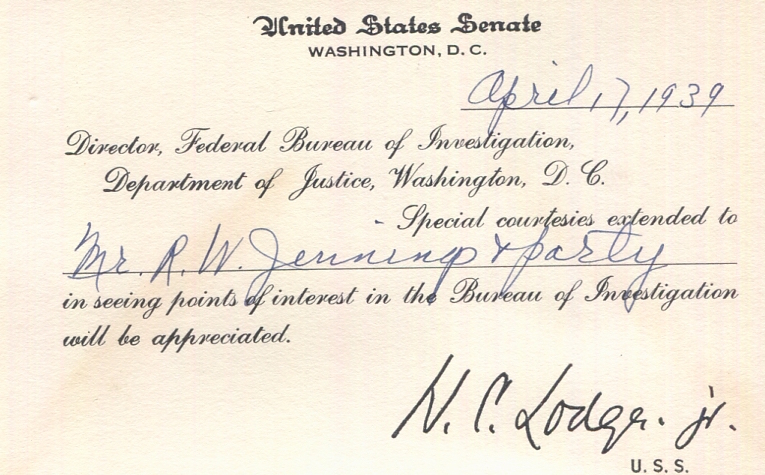 United States Senate
WASHINGTON, D. C.
April 17, 1939
Director, Federal Bureau of Investigation,
Department of Justice, Washington, D. C.
Special courtesies extended to
Mr. R. W. Jennings & party
in seeing points of interest in the Bureau of Investigation
will be appreciated.
H. C. Lodge. jr.
U. S. S.